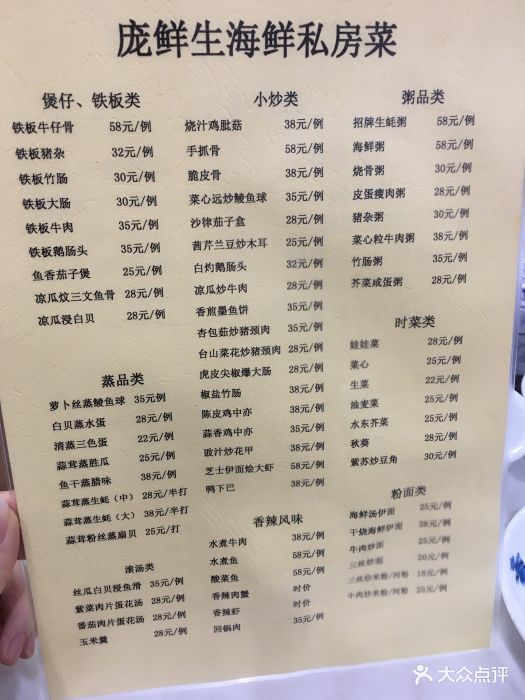 庞鲜生海鲜私房菜
煲仔、铁板类
铁板牛仔骨 58元/例
铁板猪杂 32元/例
铁板竹肠 30元/例
铁板大肠 30元/例
铁板牛肉 35元/例
铁板鹅肠头 35元/例
鱼香茄子煲 25元/例
凉瓜炆三文鱼骨 28元/例
凉瓜浸白贝 28元/例
蒸品类
萝卜丝蒸鲮鱼球 35元/例
白贝蒸水蛋 28元/例
清蒸三色蛋 22元/例
蒜茸蒸胜瓜 25元/例
鱼干蒸腊味 38元/例
蒜茸蒸生蚝（中） 28元/半打
蒜茸蒸生蚝（大） 38元/半打
蒜茸粉丝蒸扇贝 25元/打
滚汤类
丝瓜白贝浸鱼滑 35元/例
紫菜肉片蛋花汤 28元/例
番茄肉片蛋花汤 28元/例
玉米羹 28元/例
小炒类
烧汁鸡肶菇 38元/例
手抓骨 58元/例
脆皮骨 38元/例
菜心远炒鲮鱼球 35元/例
沙律茄子盒 28元/例
茜芹兰豆炒木耳 25元/例
白灼鹅肠头 32元/例
凉瓜炒牛肉 28元/例
香煎墨鱼饼 35元/例
杏包茹炒猪颈肉 35元/例
台山菜花炒猪颈肉 28元/例
虎皮尖椒爆大肠 28元/例
椒盐竹肠 38元/例
陈皮鸡中亦 38元/例
蒜香鸡中亦 35元/例
豉汁炒花甲 38元/例
芝士伊面烩大虾 58元/例
鸭下巴 38元/例
香辣风味
水煮牛肉 38元/例
水煮鱼 58元/例
酸菜鱼 58元/例
香辣肉蟹 时价
香辣虾 时价
回锅肉 35元/例
粥品类
招牌生蚝粥 58元/例
海鲜粥 58元/例
烧骨粥 30元/例
皮蛋瘦肉粥 28元/例
猪杂粥 30元/例
菜心粒牛肉粥 38元/例
竹肠粥 35元/例
芥菜咸蛋粥 28元/例
时菜类
娃娃菜 28元/例
菜心 25元/例
生菜 22元/例
油麦菜 25元/例
水东芥菜 25元/例
秋葵 28元/例
紫苏炒豆角 30元/例
粉面类
海鲜汤伊面 25元/例
干烧海鲜伊面 38元/例
牛肉炒面 25元/例
三丝炒面 20元/例
三丝炒米粉/河粉 18元/例
牛肉炒米粉/河粉 25元/例
大众点评